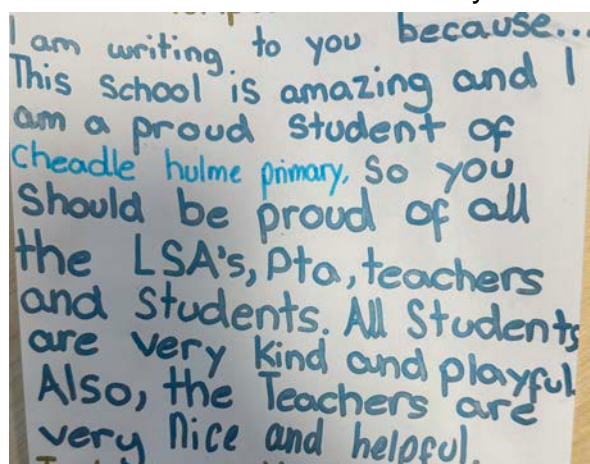 I am writing to you because...
This School is amazing and I
am a proud Student of
cheadle hulme primary, So you
Should be proud of all
the LSA's, Pta, teachers
and Students. All Students
are very kind and playful.
Also, the Teachers are
very nice and helpful.